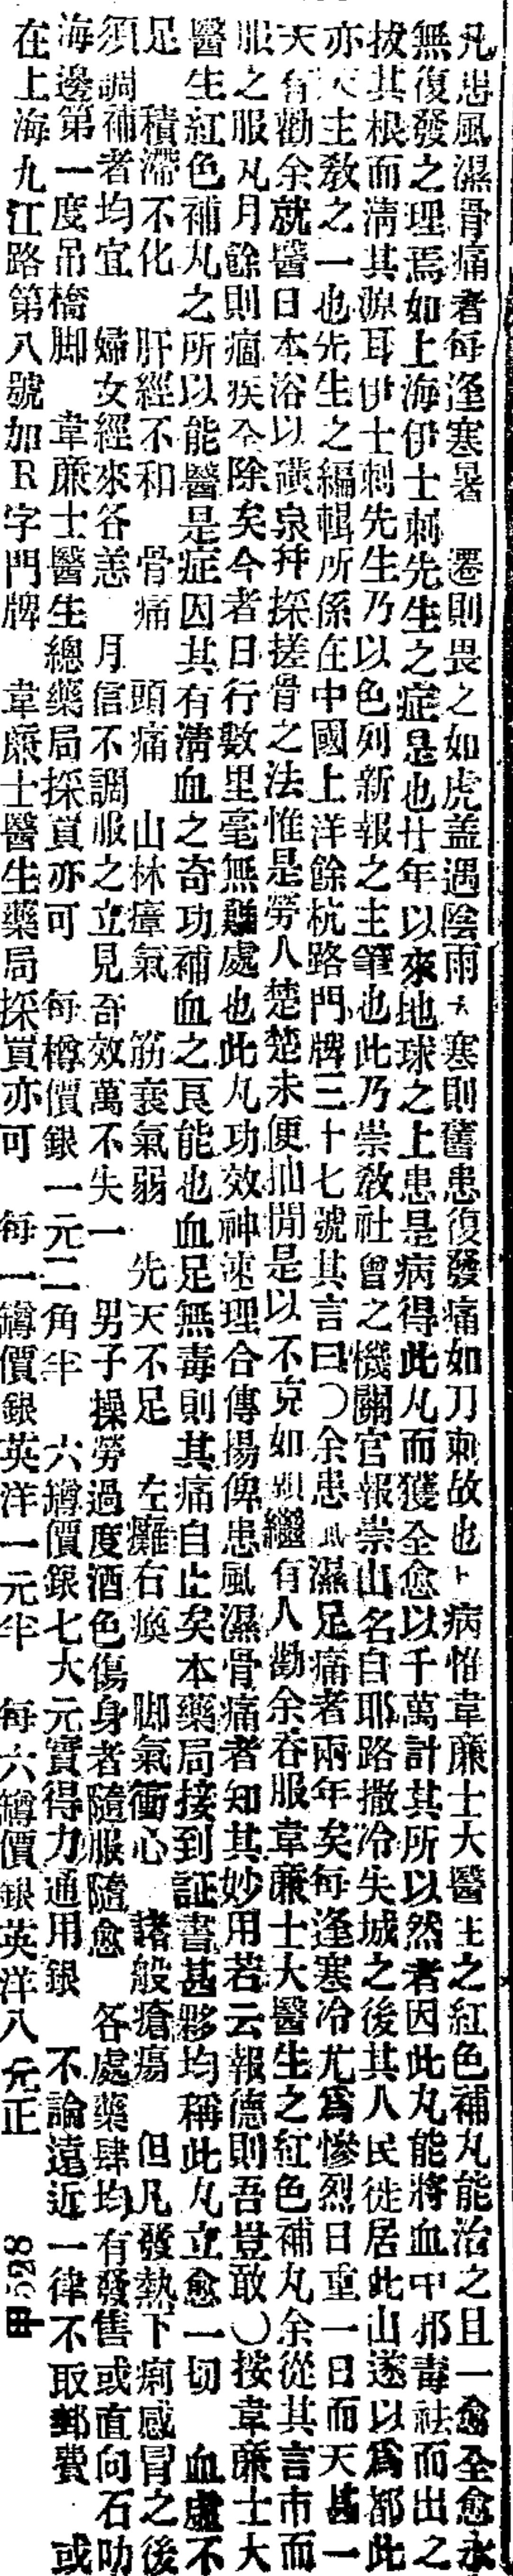 凡患風濕骨痛者每逢寒暑 遷則畏之如虎盖遇陰雨 寒則舊患復發痛如刀刺故也 病惟韋廉士大醫生之紅色補丸能治之且一愈全愈永
無復發之理焉如上海伊士刺先生之症是也廿年以來地球之上患是病得此丸而獲全愈以千萬計其所以然者因此丸能將血中邪毒祛而出之
拔其根而淸其源耳伊士刺先生乃以色列新報之主筆也此乃崇敎社曾之機關官報崇山名自耶路撒冷失城之後其人民徙居此山遂以爲都此
亦天主敎之一也先生之編輯所係在中國上洋餘杭路門牌三十七號其言曰○余患風濕足痛者兩年矣每逢寒冷尤爲慘烈日重一日而天甚一
天有勸余就醫日本浴以磺泉并採搓骨之法惟是勞人楚楚未便抽閒是以不克如願繼有人勸余呑服韋廉士大醫生之紅色補丸余從其言市而
服之服凡月餘則痼疾全除矣今者日行數里毫無難處也此丸功效神速理合傳揚俾患風濕骨痛者知其妙用若云報德則吾豈敢○按韋廉士大
醫生紅色補丸之所以能醫是症因其有淸血之奇功補血之良能也血足無毒則其痛自止矣本藥局接到証書甚夥均稱此丸立愈一切 血虛不
足 積滯不化 肝經不和 骨痛 頭痛 山林瘴氣 筋衰氣弱 先天不足 左癱右瘓 脚氣衝心 諸般瘡瘍 但凡發熱下痢感冒之後
須調補者均宜 婦女經來各恙 月信不調服之立見奇效萬不失一 男子操勞過度酒色傷身者隨服隨愈 各處藥肆均有發售或直向石叻
海邊第一度吊橋脚 韋廉士醫生總藥局採買亦可 每樽價銀一元二角半 六罇價銀七大元實得力通用銀 不論遠近一律不取郵費 或
在上海九江路第八號加R字門牌 韋廉士醫生藥局採買亦可 每一罇價銀英洋一元半 每六罇價銀英洋八元正 甲528